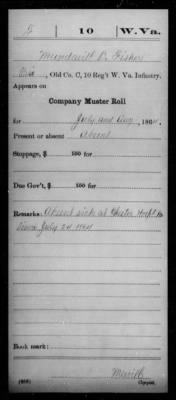 F 10 W. Va.
Fisher
Old Co. C, 10 Reg't W. Va. Infantry.
Appears on
Company Muster Roll
for July and Aug, 1864.
Present or absent Absent
Stoppage, $ 100 for
Due Gov't, $ 100 for
Remarks: Absent sick at Hosp't
Since July 24 1864
Book mark:
(858) Copyist.